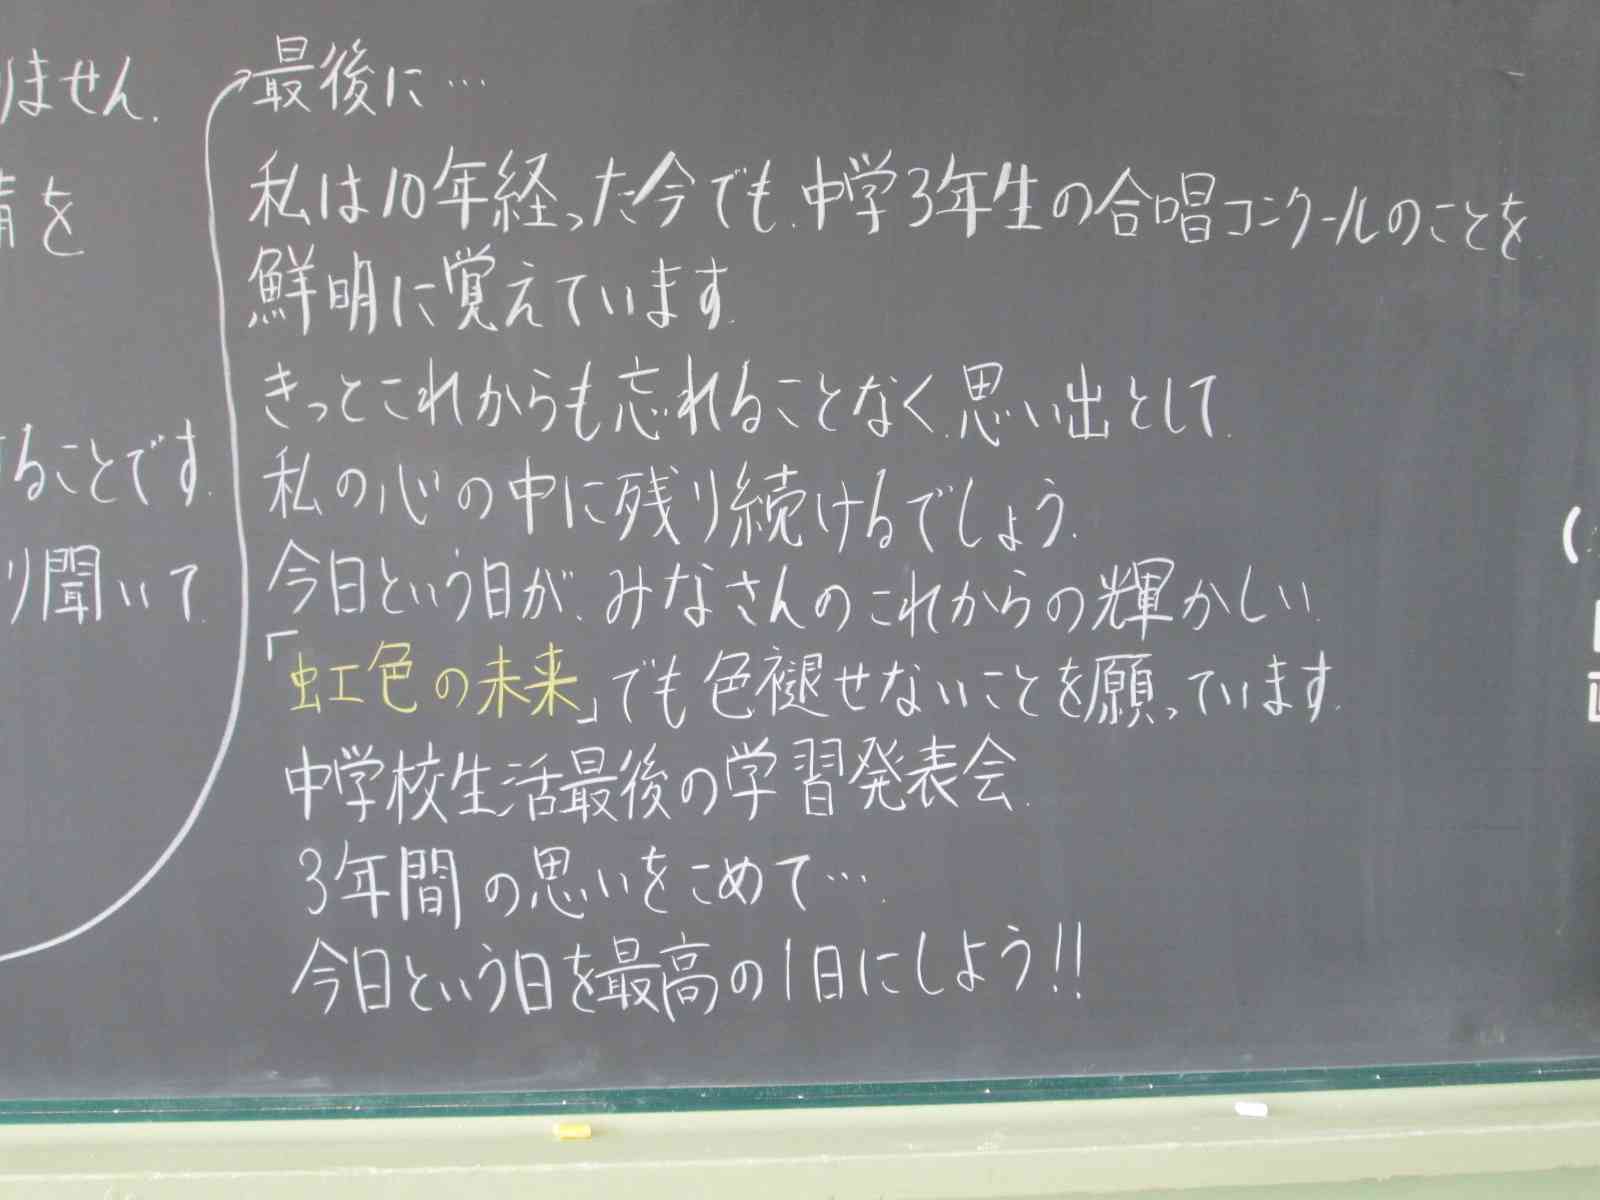 りません.
を
ることです.
り聞いて
最後に…
私は10年経った今でも、中学3年生の合唱コンクールのことを
鮮明に覚えています.
きっとこれからも忘れることなく、思い出として
私の心の中に残り続けるでしょう.
今日という日が、みなさんのこれからの輝かしい
「虹色の未来」でも色褪せないことを願っています.
中学校生活最後の学習発表会.
3年間の思いをこめて…
今日という日を最高の1日にしよう!!